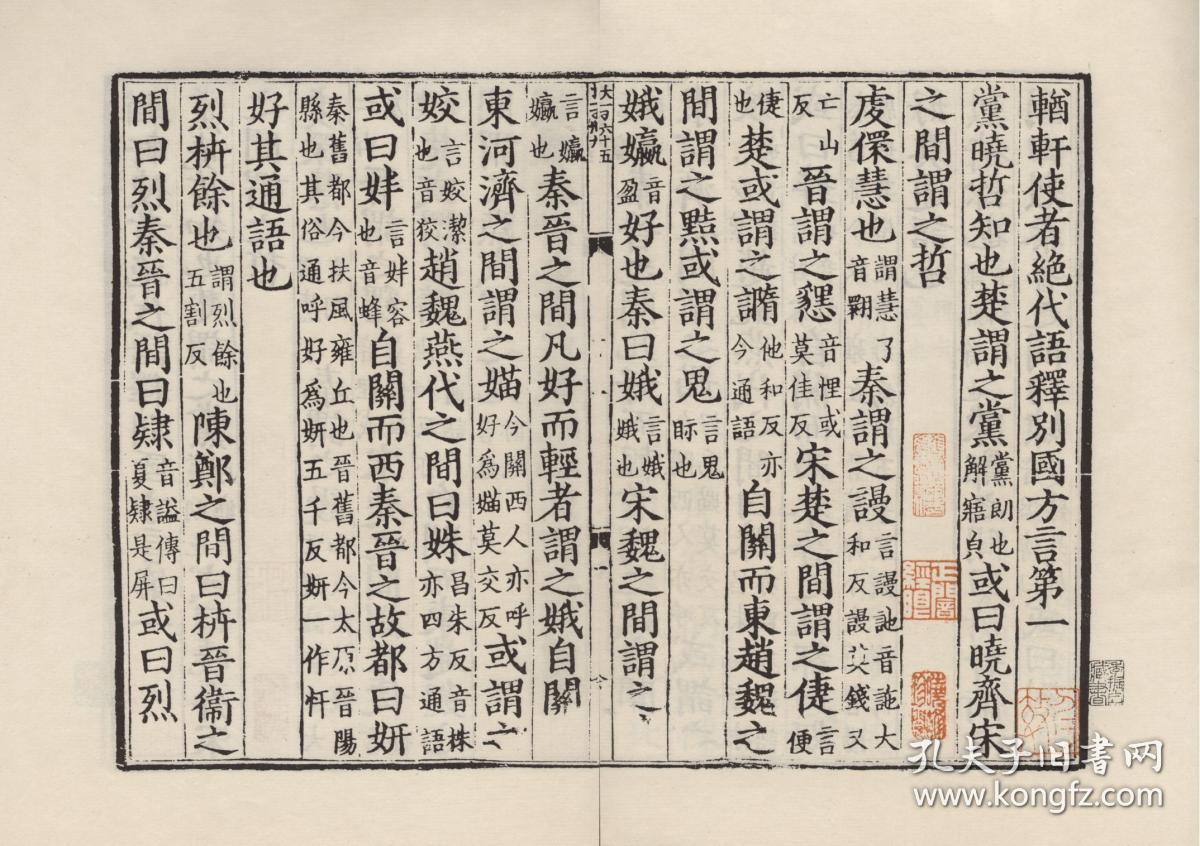 輶軒使者絕代語釋別國方言第一
黨曉哲知也楚謂之黨黨朗也解寤皃或曰曉齊宋
之間謂之哲
虔儇慧也謂慧了音翾秦謂之謾言謾訑音訑大和反謾莫錢又
亡山反晉謂之㦟音悝或莫佳反宋楚之間謂之倢言便
倢也楚或謂之䜏他和反亦今通語自關而東趙魏之
間謂之黠或謂之鬼言鬼眎也
娥㜲音盈好也秦曰娥言娥娥也宋魏之間謂之
㜲言㜲㜲也秦晉之間凡好而輕者謂之娥自關
東河濟之間謂之媌今關西人亦呼好爲媌莫交反或謂之
姣言姣潔也音狡趙魏燕代之間曰姝昌朱反音株亦四方通語
或曰妦言妦容也音蜂自關而西秦晉之故都曰妍
秦舊都今扶風雍丘也晉舊都今太原晉陽縣也其俗通呼好爲妍五千反妍一作忏
好其通語也
烈枿餘也謂烈餘也五割反陳鄭之間曰枿晉衞之
間曰烈秦晉之間曰肄音謚傳曰夏肄是屏或曰烈
孔夫子旧书网
www.kongfz.com